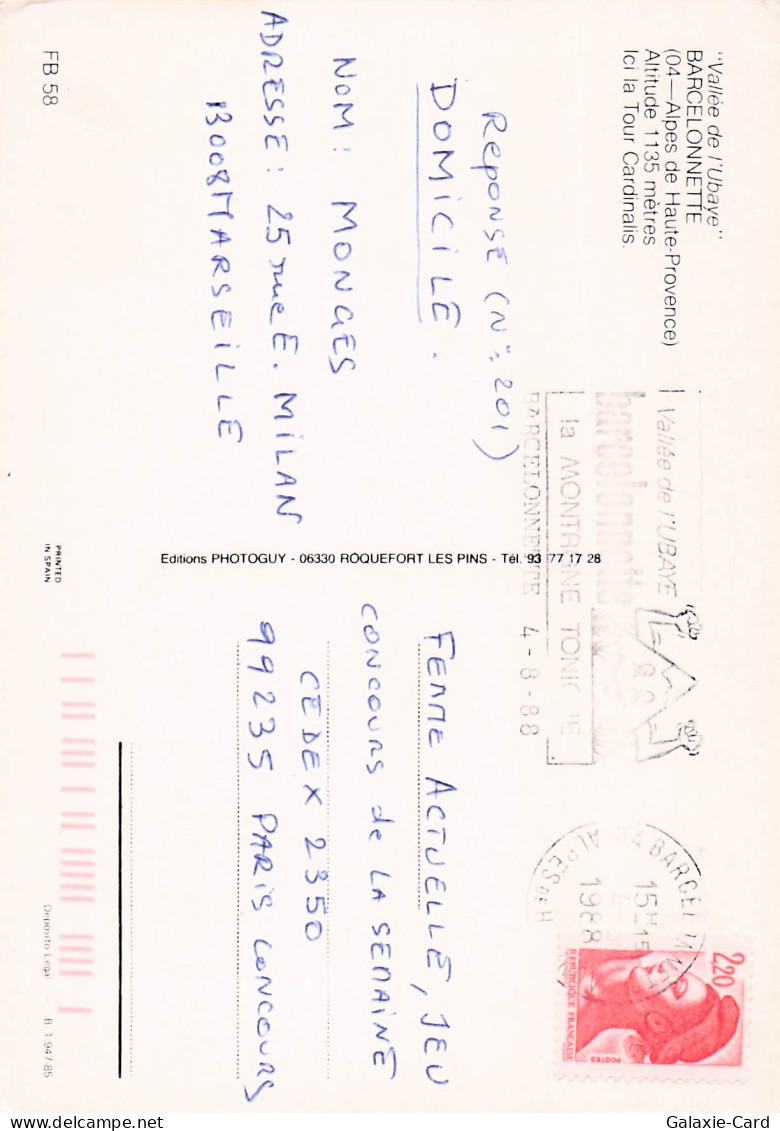 "Vallée de l'Ubaye"
BARCELONNETTE
(04—Alpes de Haute-Provence)
Altitude 1135 mètres
Ici la Tour Cardinalis.
REPONSE (N°: 201)
DOMICILE.
NOM: MONGES
ADRESSE: 25 rue E. MILAN
13008 MARSEILLE
FB 58
Editions PHOTOGUY - 06330 ROQUEFORT LES PINS - Tél. 93 77 17 28
PRINTED
IN SPAIN
Vallée de l'UBAYE
barcelonnette
la MONTAGNE TONIQUE
BARCELONNETTE 4-8-88
04 BARCELONNET
15H15
1988
ALPES DE H
2,20
REPUBLIQUE FRANÇAISE
POSTES
FEMME ACTUELLE, JEU
CONCOURS de LA SEMAINE
CEDEX 2350
99235 PARIS CONCOURS
Deposito Legal B 1.947-85
Galaxie-Card